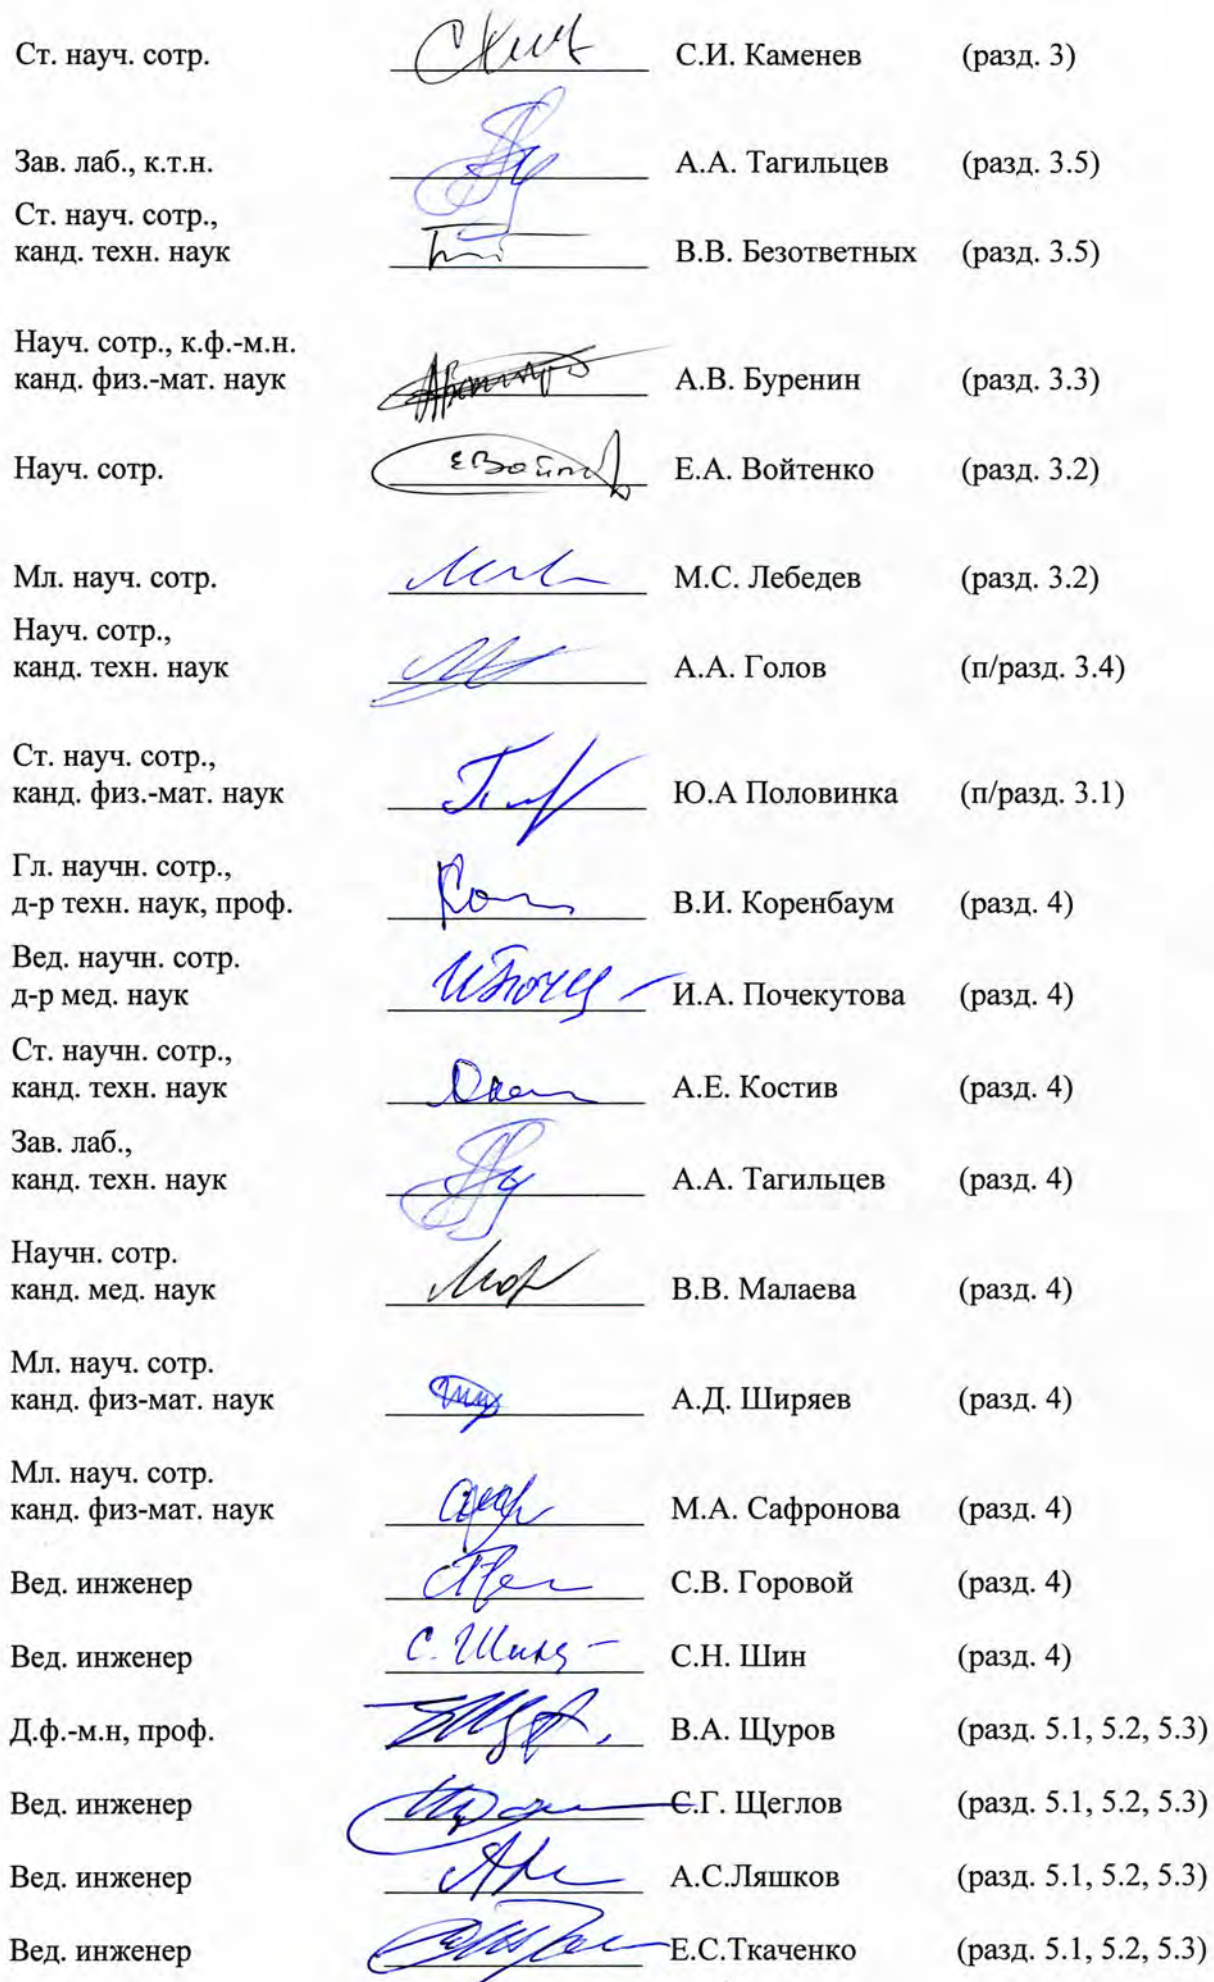 Ст. науч. сотр. С.И. Каменев (разд. 3)
Зав. лаб., к.т.н. А.А. Тагильцев (разд. 3.5)
Ст. науч. сотр.,
канд. техн. наук В.В. Безответных (разд. 3.5)
Науч. сотр., к.ф.-м.н.
канд. физ.-мат. наук А.В. Буренин (разд. 3.3)
Науч. сотр. Е.А. Войтенко (разд. 3.2)
Мл. науч. сотр. М.С. Лебедев (разд. 3.2)
Науч. сотр.,
канд. техн. наук А.А. Голов (п/разд. 3.4)
Ст. науч. сотр.,
канд. физ.-мат. наук Ю.А Половинка (п/разд. 3.1)
Гл. научн. сотр.,
д-р техн. наук, проф. В.И. Коренбаум (разд. 4)
Вед. научн. сотр.
д-р мед. наук И.А. Почекутова (разд. 4)
Ст. научн. сотр.,
канд. техн. наук А.Е. Костив (разд. 4)
Зав. лаб.,
канд. техн. наук А.А. Тагильцев (разд. 4)
Научн. сотр.
канд. мед. наук В.В. Малаева (разд. 4)
Мл. науч. сотр.
канд. физ-мат. наук А.Д. Ширяев (разд. 4)
Мл. науч. сотр.
канд. физ-мат. наук М.А. Сафронова (разд. 4)
Вед. инженер С.В. Горовой (разд. 4)
Вед. инженер С.Н. Шин (разд. 4)
Д.ф.-м.н, проф. В.А. Щуров (разд. 5.1, 5.2, 5.3)
Вед. инженер С.Г. Щеглов (разд. 5.1, 5.2, 5.3)
Вед. инженер А.С.Ляшков (разд. 5.1, 5.2, 5.3)
Вед. инженер Е.С.Ткаченко (разд. 5.1, 5.2, 5.3)